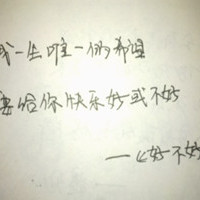 我一生唯一的希望
要给你快乐好或不好
一好不好